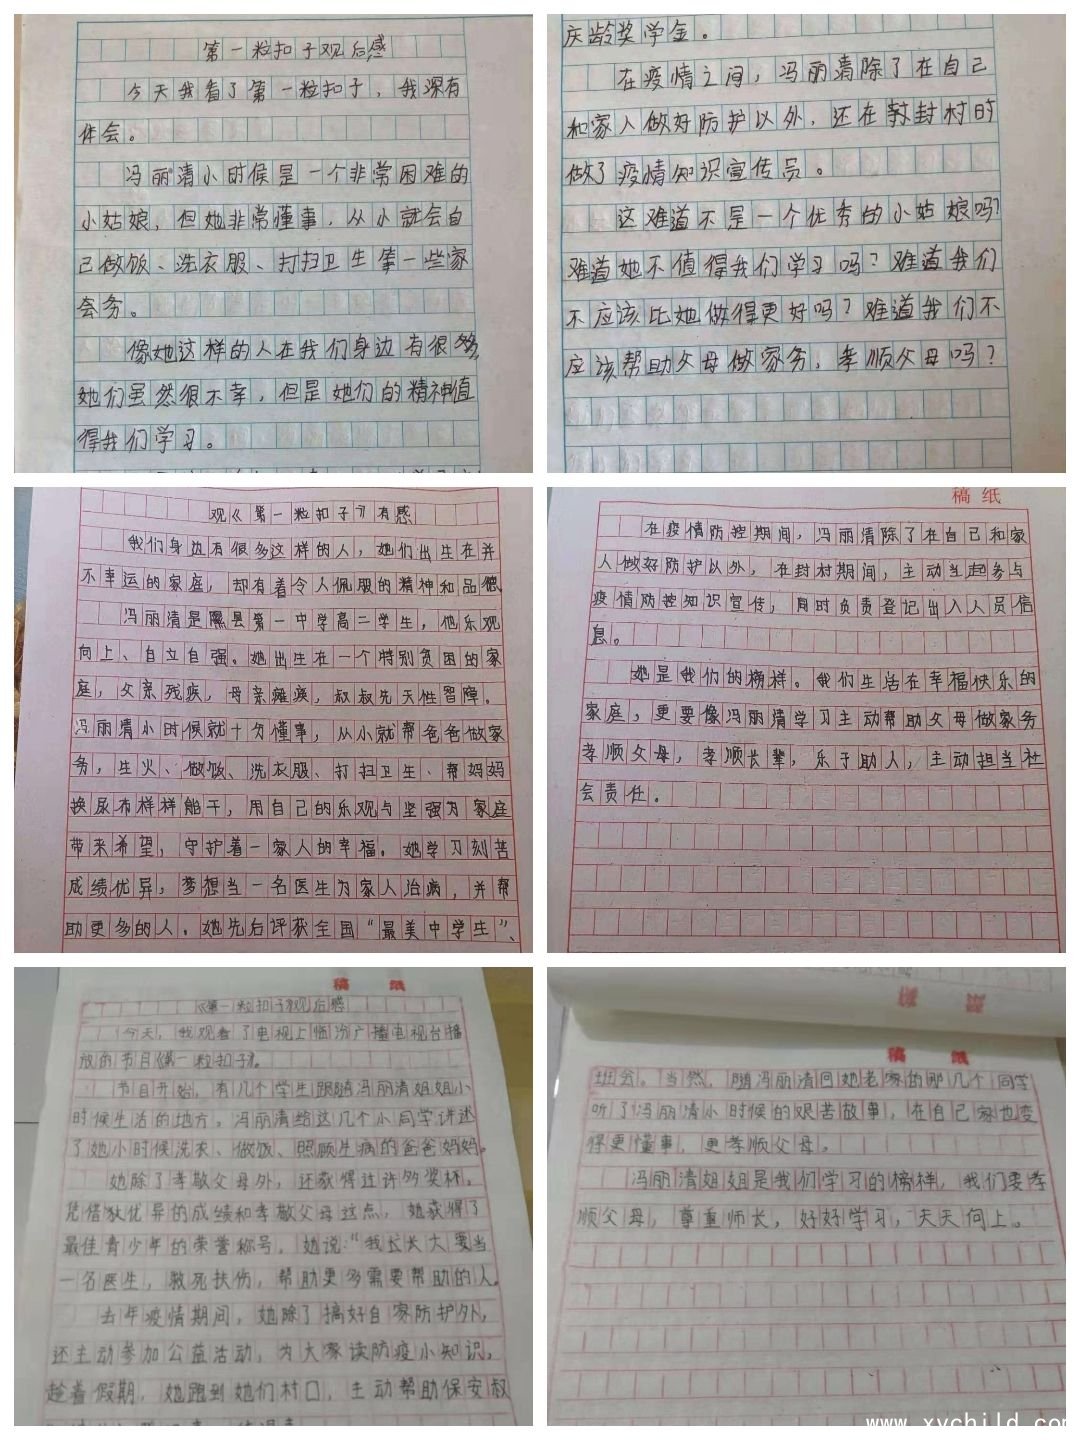 第一粒扣子观后感
今天我看了第一粒扣子，我深有
体会。
冯丽清小时候是一个非常困难的
小姑娘，但她非常懂事，从小就会自
己做饭、洗衣服、打扫卫生第一些家
会务。
像她这样的人在我们身边有很多，
她们虽然很不幸，但是她们的精神值
得我们学习。
庆龄奖学金。
在疫情之间，冯丽清除了在自己
和家人做好防护以外，还在封村时
做了疫情知识宣传员。
这难道不是一个优秀的小姑娘吗？
难道她不值得我们学习吗？难道我们
不应该比她做得更好吗？难道我们不
应该帮助父母做家务，孝顺父母吗？
观《第一粒扣子》有感
我们身边有很多这样的人，她们出生在并
不幸运的家庭，却有着令人佩服的精神和品德
冯丽清是隰县第一中学高二学生，他乐观
向上、自立自强。她出生在一个特别贫困的家
庭，父亲残疾，母亲瘫痪，叔叔先天性智障。
冯丽清小时候就十分懂事，从小就帮爸爸做家
务，生火、做饭、洗衣服、打扫卫生、帮妈妈
换尿布样样能干，用自己的乐观与坚强为家庭
带来希望，守护着一家人的幸福。她学习刻苦
成绩优异，梦想当一名医生为家人治病，并帮
助更多的人。她先后评获全国“最美中学生”、
稿纸
在疫情防控期间，冯丽清除了在自己和家
人做好防护以外，在封村期间，主动当起参与
疫情防控知识宣传，同时负责登记出入人员信
息。
她是我们的榜样。我们生活在幸福快乐的
家庭，更要像冯丽清学习主动帮助父母做家务
孝顺父母，孝顺长辈，乐于助人，主动担当社
会责任。
稿纸
《第一粒扣子》观后感
今天，我观看了电视上临汾广播电视台播
放的节目《第一粒扣子》。
节目开始，有几个学生跟随冯丽清姐姐小
时候生活的地方。冯丽清给这几个小同学讲述
了她小时候洗衣、做饭、照顾生病的爸爸妈妈。
她除了孝敬父母外，还获得过许多奖杯，
凭借优异的成绩和孝敬父母这点，她获得了
最佳青少年的荣誉称号。她说：“我长大要当
一名医生，救死扶伤，帮助更多需要帮助的人。
去年疫情期间，她除了搞好自家防护外，
还主动参加公益活动，为大家读防疫小知识，
趁着假期，她跑到她们村口，主动帮助保安叔
稿纸
班会。当然，随冯丽清回她老家的那几个同学
听了冯丽清小时候的艰苦故事，在自己家也变
得更懂事，更孝顺父母。
冯丽清姐姐是我们学习的榜样，我们要孝
顺父母，尊重师长，好好学习，天天向上。
www.xychild.com